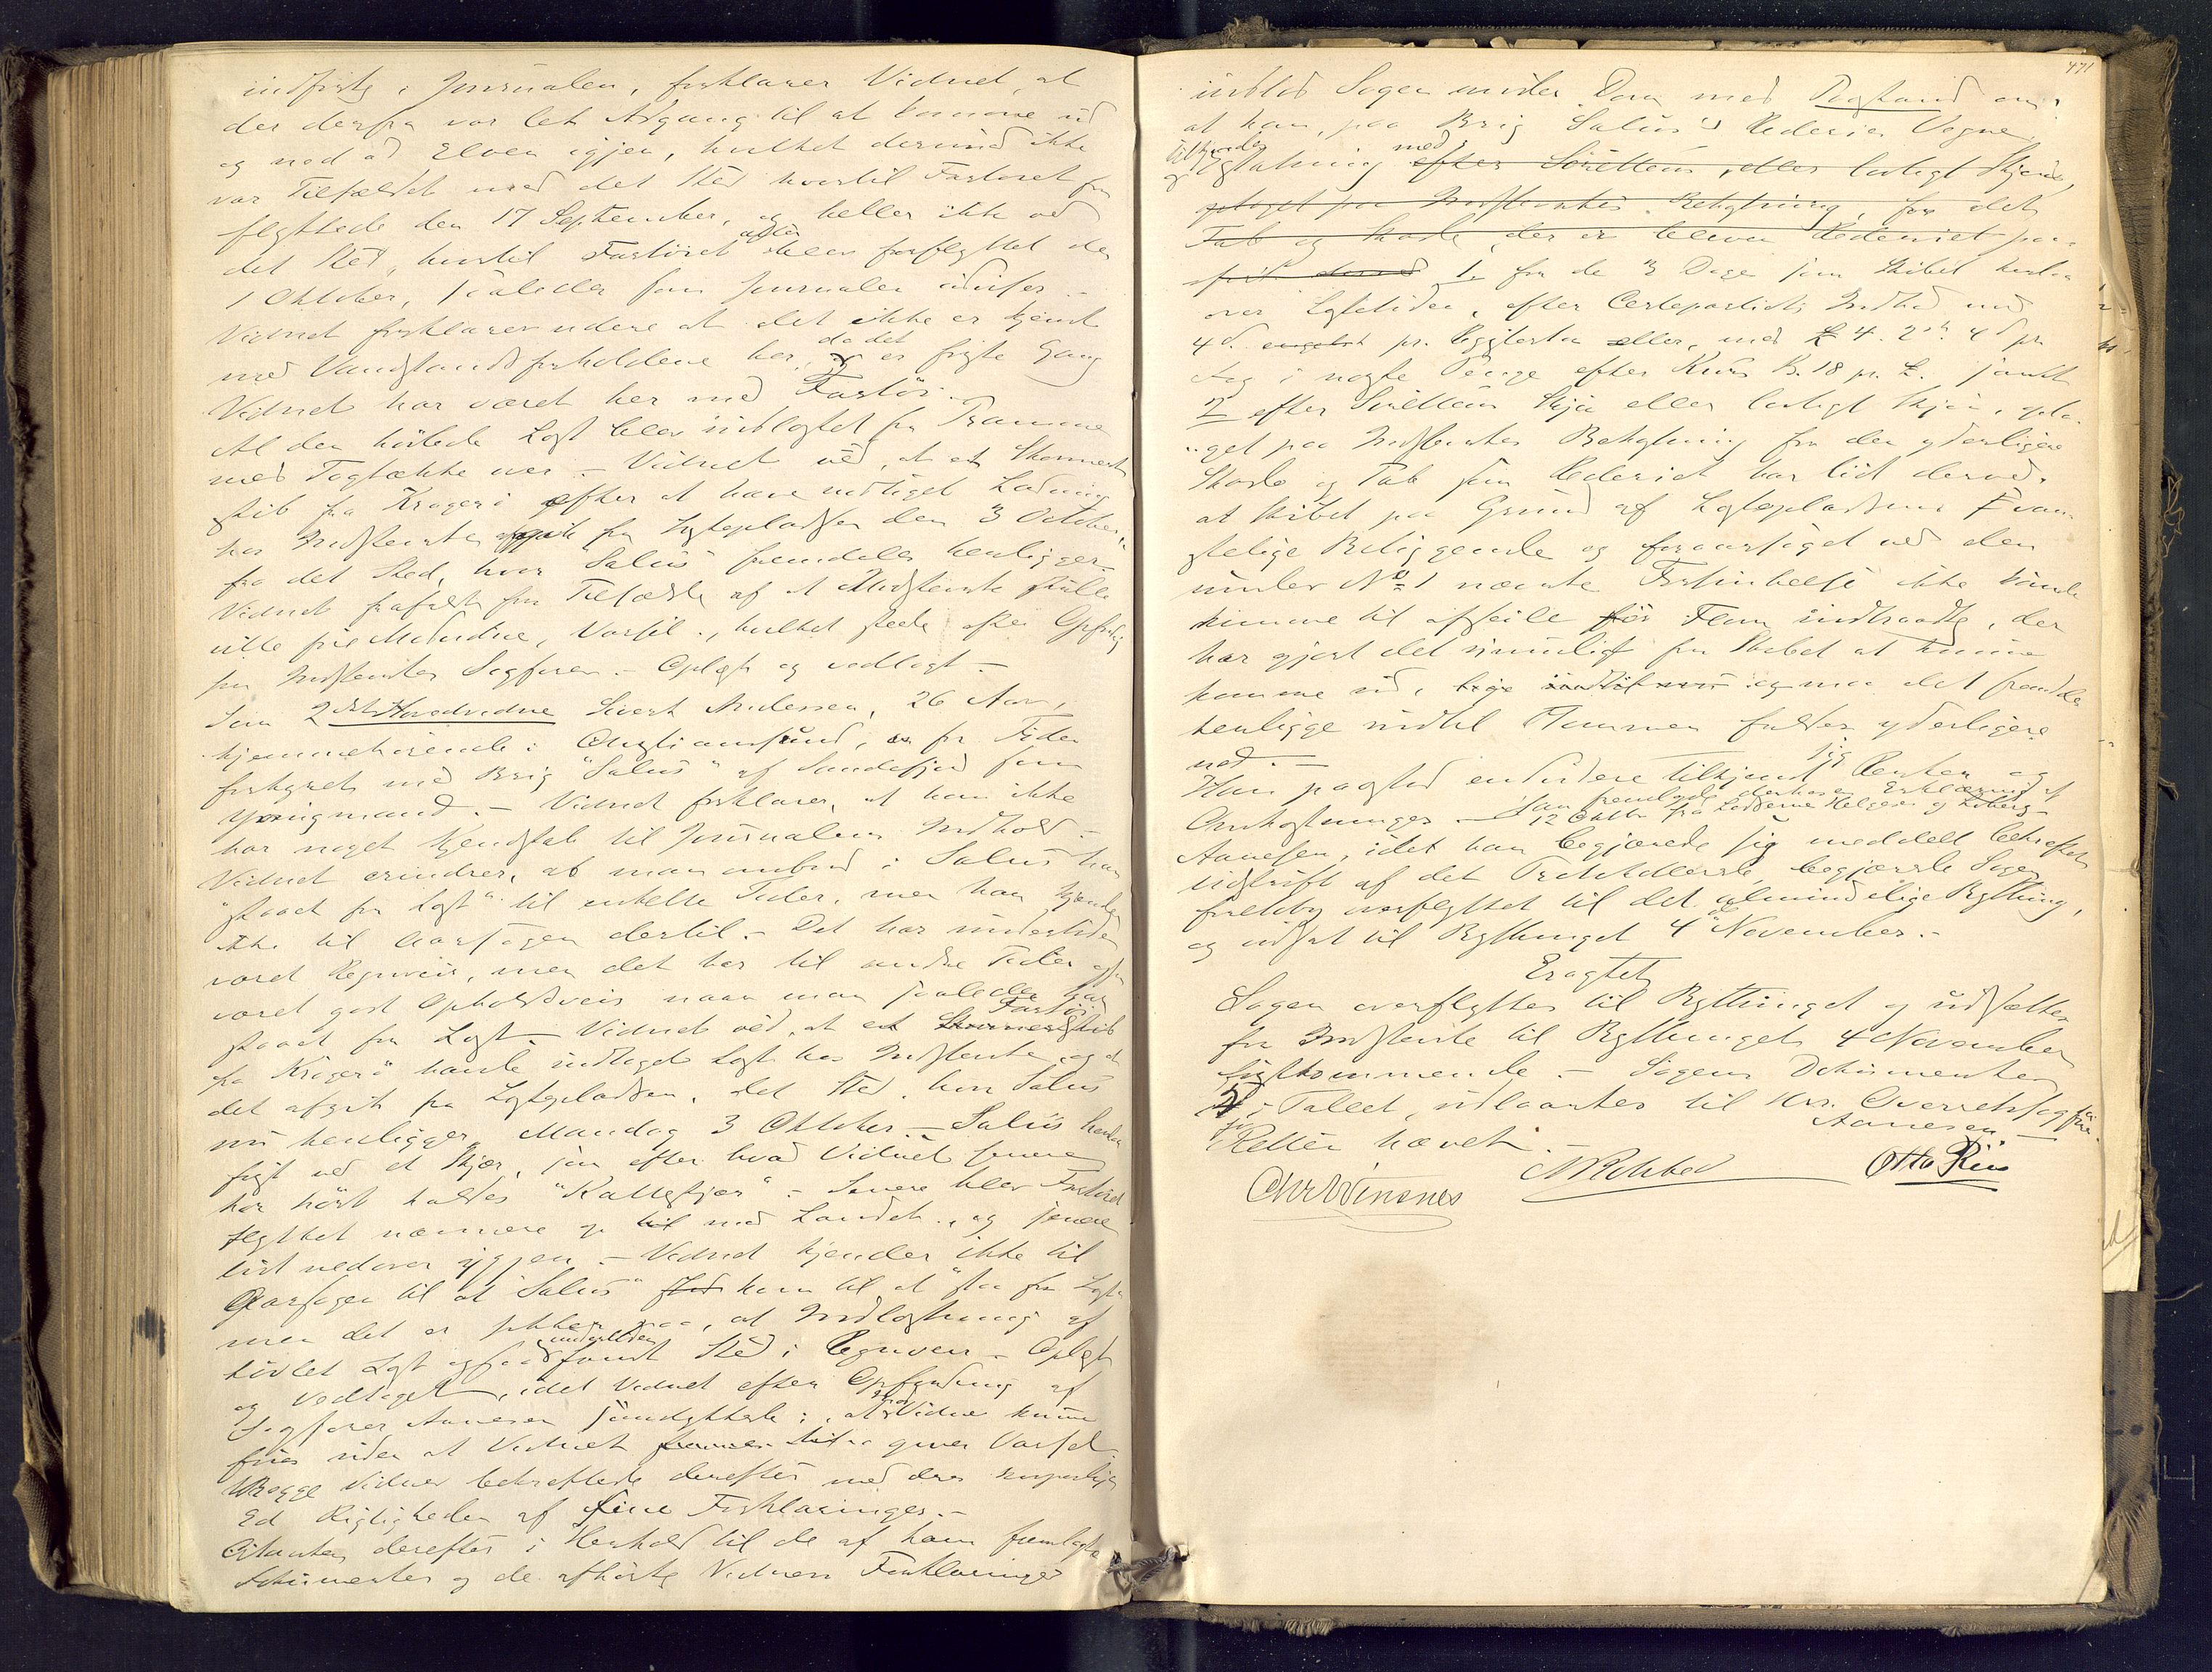 indførte i Journalen, forklarer Vidnet, at
der derfra var let Adgang til at komme ud
og ned ad Elven igjen, hvilket derimod ikke
var Tilfældet med det Sted hvortil Fartøiet
flyttede den 17 September, og heller ikke ad
det Sted, hvortil Fartøiet atter blev forflyttet den
1 Oktober, saaledes som Journalen udviser.
Vidnet forklarer videre at det ikke er kjendt
med Vandstandsforholdene her, da det er første Gang
Vidnet har været her med Fartøi.
Al den høvlede Last blev indlastet fra Pramme
med Tag over. – Vidnet ved, at et
skib fra Kragerø efter at have indtaget Ladning
hos Indstevnte afgik fra Lastepladsen den 3 October,
fra det Sted, hvor Salus fremdeles henligger.
Vidnet frafaldt for Tilfælde af at Indstevnte skulle
ville føre Modvidne, Varsel, hvilket skede efter Opfordring
fra Indstevntes Sagfører. – Oplæst og vedtaget –
Som 2det Hovedvidne Sivert Andersen, 26 Aar,
hjemmehørende i Christianssund, for Tiden
forhyret med Brig "Salus" af Sandefjord som
Yngmand. – Vidnet forklarer, at han ikke
har noget Kjendskab til Journalens Indhold –
Vidnet erindrer, at man ombord i Salus har
"staaet for Last" til enkelte Tider, men han kjender
ikke til Aarsagen dertil. – Det har undertiden
været Regnveir, men det har til andre Tider
været godt Opholdsveir naar man saaledes har
staaet for Last. – Vidnet ved, at et Fartøi
fra Kragerø havde indtaget Last hos Indstevnte og at
det afgik fra Lastepladsen, det Sted, hvor Salus
nu henligger, Mandag 3 Oktober. – Salus havde
fast ved et Skjær, som efter hvad Vidnet senere
har hørt kaldes "Kalvskjær". – Senere blev Fartøiet
flyttet nærmere op til med Landet, og senere
lidt nedover igjen. – Vidnet kjender ikke til
Aarsagen til at "Salus" kom til at "staa for Last"
men det er sikker paa, at Indlastning af
høvlet Last undertiden fandt Sted i Regnveir – Oplæst
og vedtaget, idet Vidnet efter Opfordring af
Sagfører Aanesen samtykkede i, at Vidne kunde
føres uden at Vidnet gives Varsel.
Begge Vidner bekræftede derefter med deres corporlige
Ed Rigtigheden af sine Forklaringer. –
Citanten derefter i Henhold til de af ham fremlagte
Dokumenter og de afhørte Vidners Forklaringer
471
indlod Sagen under Dom med Paastand om,
at han, paa Brig Salus's Rederies Vegne,
tilkjendes
Erstatning med efter Sørettens eller lovligt Skjøn,
optaget paa Indstevntes Bekostning, for det
Tab og Skade, der er bleven Rederiet paa-
ført derved 1. for de 3 Dage som Skibet
over Liggetiden, efter Certepartiets Indhold med
4d. engelsk pr. Registerton eller, med £ 4. 2sh. 4d pr
Dag i norske Penge efter Kurs Kr. 18 pr. £. samt
2 efter Sørettens Skjøn eller lovligt Skjøn, opta-
get paa Indstevntes Bekostning for den yderligere
Skade og Tab som Rederiet har lidt derved,
at Skibet paa Grund af Lastepladsens
stelige Beliggende og foraarsaget ved den
under No 1 nævnte Forsinkelse ikke kunde
komme til at seile før Flom indtraadte, der
har gjort det umuligt for Skibet at kunne
komme ud, og maa det fremdeles
henligge indtil Flommen falder yderligere
ned. –
Han paastod endvidere tilkjendt sig Renter og
Omkostninger. – Han fremlagde derhos en Erklæring af
12 Oktbr fra Lodserne Helgesen og
Aanesen, idet han begjærede sig meddelt bekræftet
Udskrift af det Passerede, begjærede Sagen
foreløbig overflyttet til det almindelige Bything,
og udsat til Bythinget 4 November. –
Eragtet
Sagen overflyttes til Bythinget og udsættes
for Indstevnte til Bythinget 4 November
førstkommende. – Sagens Dokumenter
i Tallet, udlaantes til Hr. Overretssagfører
Aanesen –
Retten hævet. –
Chr Winsnes
Otto Riis